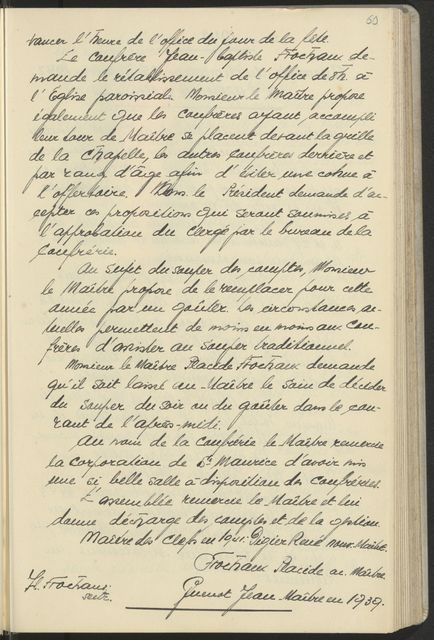 50
vancer l'heure de l'office du jour de la fête.
Le confrère Jean-Baptiste Frochaux de-
mande le rétablissement de l'office de 8h. à
l'Eglise paroissiale. Monsieur le Maître propose
également que les confrères ayant accompli
leur tour de Maître se placent devant la grille
de la Chapelle, les autres confrères derrière et
par rang d'âge afin d'éviter une cohue à
l'offertoire. Mons. le Président demande d'ac-
cepter ces propositions qui seront soumises à
l'approbation du Clergé par le bureau de la
Confrérie.
Au sujet du souper des comptes, Monsieur
le Maître propose de le remplacer pour cette
année par un goûter. Les circonstances ac-
tuelles permettent de moins en moins aux con-
frères d'assister au souper traditionnel.
Monsieur le Maître Placide Frochaux demande
qu'il soit laissé au Maître le soin de décider
du souper du soir ou du goûter dans le cou-
rant de l'après-midi.
Au nom de la Confrérie le Maître remercie
la corporation de St Maurice d'avoir mis
une si belle salle à disposition des confrères.
L'assemblée remercie le Maître et lui
donne décharge des comptes et de la gestion.
Maître des Clefs en 1941: Digier René nouv. Maître.
Frochaux Placide anc. Maître.
Frochaux
secrét.
Jean Maître en 1939.